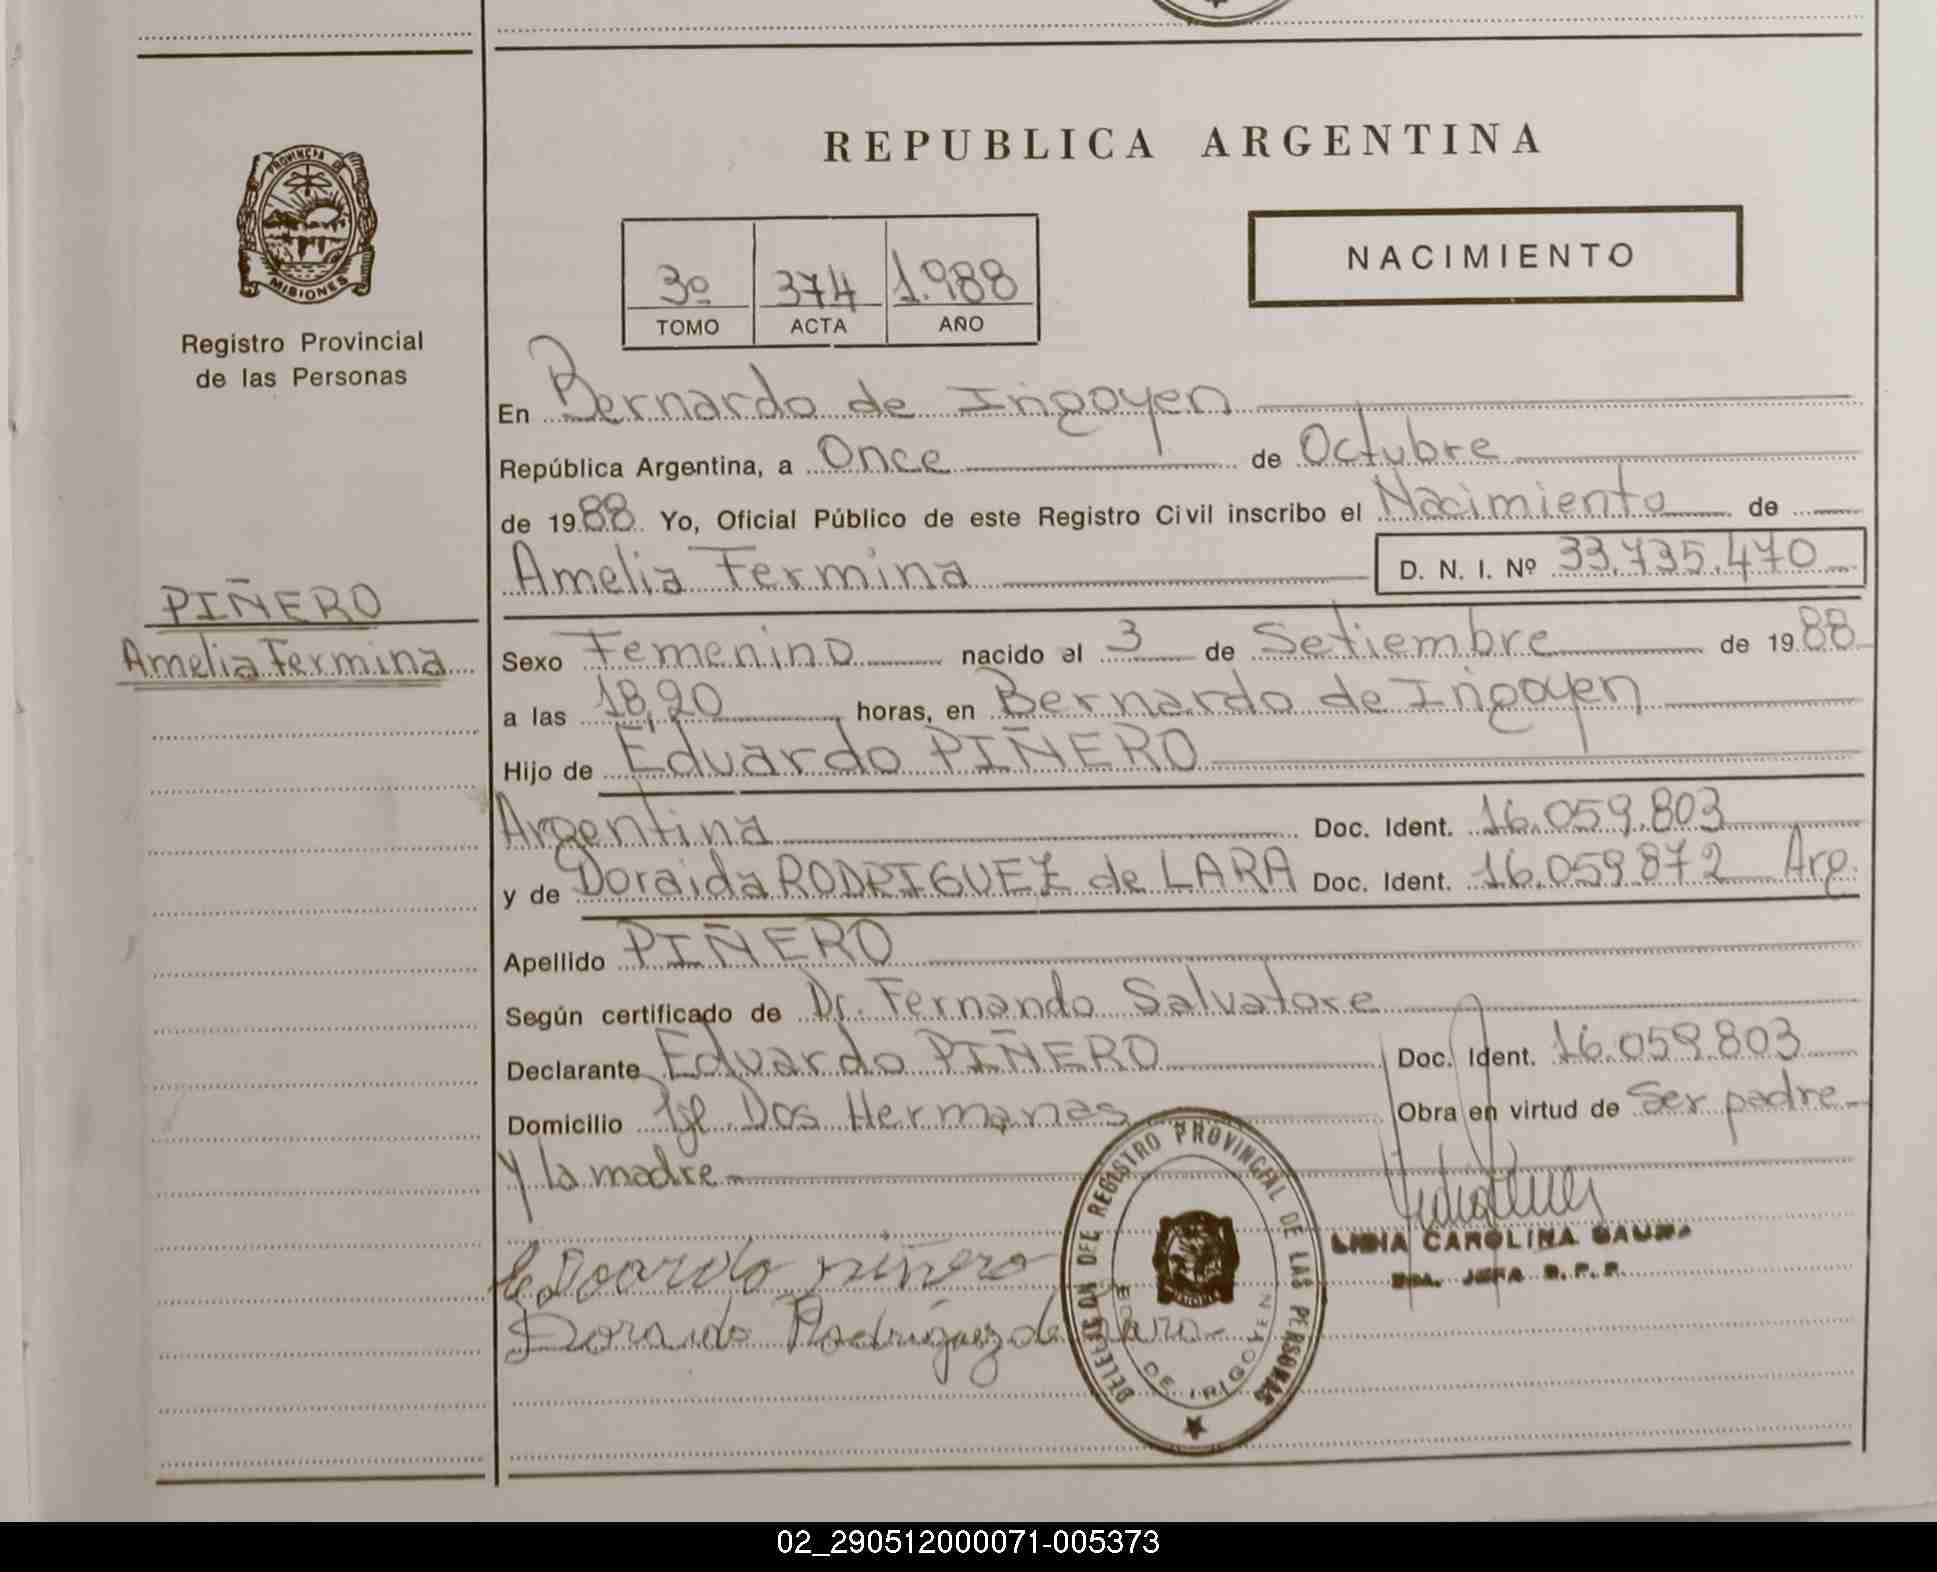 PROVINCIA DE
MISIONES
Registro Provincial
de las Personas
PIÑERO
Amelia Fermina
REPUBLICA ARGENTINA
3º 374 1.988
TOMO ACTA AÑO
NACIMIENTO
En Bernardo de Irigoyen
República Argentina, a Once de Octubre
de 1988 Yo, Oficial Público de este Registro Civil inscribo el Nacimiento de
Amelia Fermina D. N. I. Nº 33.735.470
Sexo Femenino nacido el 3 de Setiembre de 1988
a las 18,20 horas, en Bernardo de Irigoyen
Hijo de Eduardo PIÑERO
Argentina Doc. Ident. 16.059.803
y de Doraida RODRIGUEZ de LARA Doc. Ident. 16.059872 Arg.
Apellido PIÑERO
Según certificado de Dr. Fernando Salvatore
Declarante Eduardo PIÑERO Doc. Ident. 16.059.803
Domicilio Dos Hermanas Obra en virtud de Ser padre
y la madre
Eduardo Piñero
Doraida Rodríguez de Lara
DELEGACION DEL REGISTRO PROVINCIAL DE LAS PERSONAS
DE IRIGOYEN
CAROLINA
JEFA R.P.P.
02_290512000071-005373